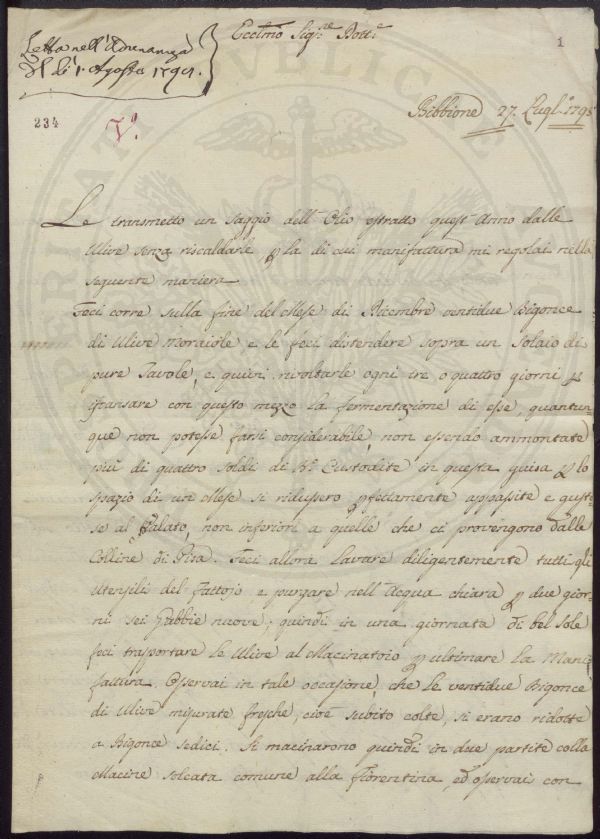 Letta nell'Adunanza
del dì 1. Agosto 1795.
Ecclmo Sigre Dotte
1
Bibbione 27. Lugl. 1795
234
Vo.
Le transmetto un saggio dell'Olio estratto quest'Anno dalle
Ulive senza riscaldarle, p la di cui manifattura mi regolai nella
seguente maniera
Feci corre sulla fine del Mese di Dicembre ventidue Bigonce
di Ulive moraiole e le feci distendere sopra un solaio di
pure Tavole, e quivi rivoltarle ogni tre o quattro giorni p
iscansare con questo mezzo la fermentazione di esse, quantun
que non potesse farsi considerabile, non essendo ammontate
più di quattro soldi di Bo. Custodite in questa guisa p lo
spazio di un Mese si ridussero pfectamente appassite e gusto
se al Palato, non inferiori a quelle che ci provengono dalle
Colline di Pisa. Feci allora lavare diligentemente tutti gli
Utensili del Fattojo e purgare nell'Acqua chiara p due gior
ni sei Gabbie nuove; quindi in una giornata di bel Sole
feci trasportare le Ulive al Macinatoio p ultimare la Mani
fattura. Osservai in tale occasione, che le ventidue Bigonce
di Ulive misurate fresche, cioè subito colte, si erano ridotte
a Bigonce sedici. Si macinarono quindi in due partite colla
Macine solcata comune alla fiorentina, ed osservai con